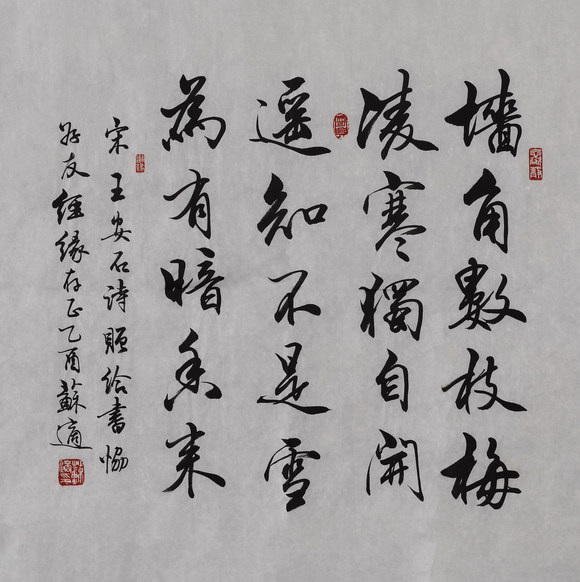 墻角數枝梅
凌寒獨自開
遥知不是雪
為有暗香来
宋王安石詩贈给書協
好友經緣存正乙酉蘇適